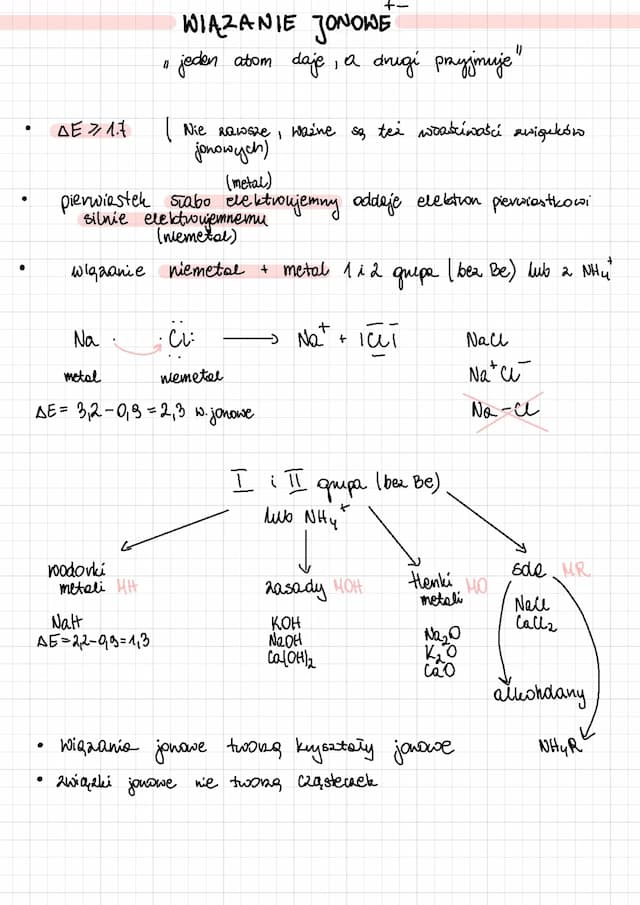 WIĄZANIE JONOWE +-
„jeden atom daje, a drugi przyjmuje"
• ΔE ⩾ 1.7 ( Nie zawsze, ważne są też właściwości związków
jonowych)
(metal)
• pierwiastek słabo elektroujemny oddaje elektron pierwiastkowi
silnie elektroujemnemu
(niemetal)
• wiązanie niemetal + metal 1 i 2 grupa (bez Be) lub z NH₄⁺
Na · ·Cl: ⟶ Na⁺ + |Cl| NaCl
metal niemetal Na⁺Cl⁻
ΔE = 3,2-0,9 = 2,3 w. jonowe Na-Cl
I i II grupa (bez Be)
lub NH₄⁺
wodorki
metali MH
NaH
ΔE=2,2-0,9=1,3
zasady MOH
KOH
NaOH
Ca(OH)₂
tlenki MO
metali
Na₂O
K₂O
CaO
sole MR
NaCl
CaCl₂
alkohdany
NH₄R
• Wiązania jonowe tworzą kryształy jonowe
• związki jonowe nie tworzą cząsteczek